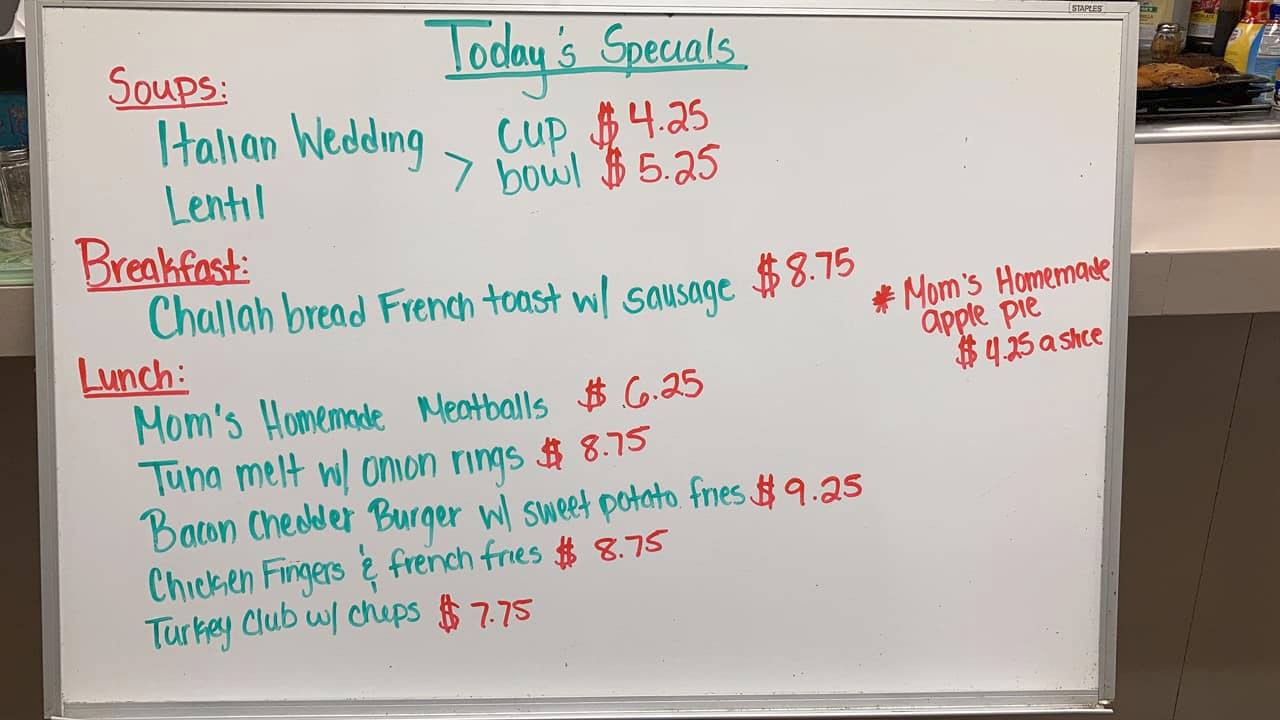 STAPLES
Today's Specials
Soups:
Italian Wedding > cup $4.25
Lentil bowl $5.25
Breakfast:
Challah bread French toast w/ sausage $8.75
* Mom's Homemade
apple pie
$4.25 a slice
Lunch:
Mom's Homemade Meatballs $6.25
Tuna melt w/ onion rings $8.75
Bacon Chedder Burger w/ sweet potato fries $9.25
Chicken Fingers & french fries $8.75
Turkey Club w/ chips $7.75